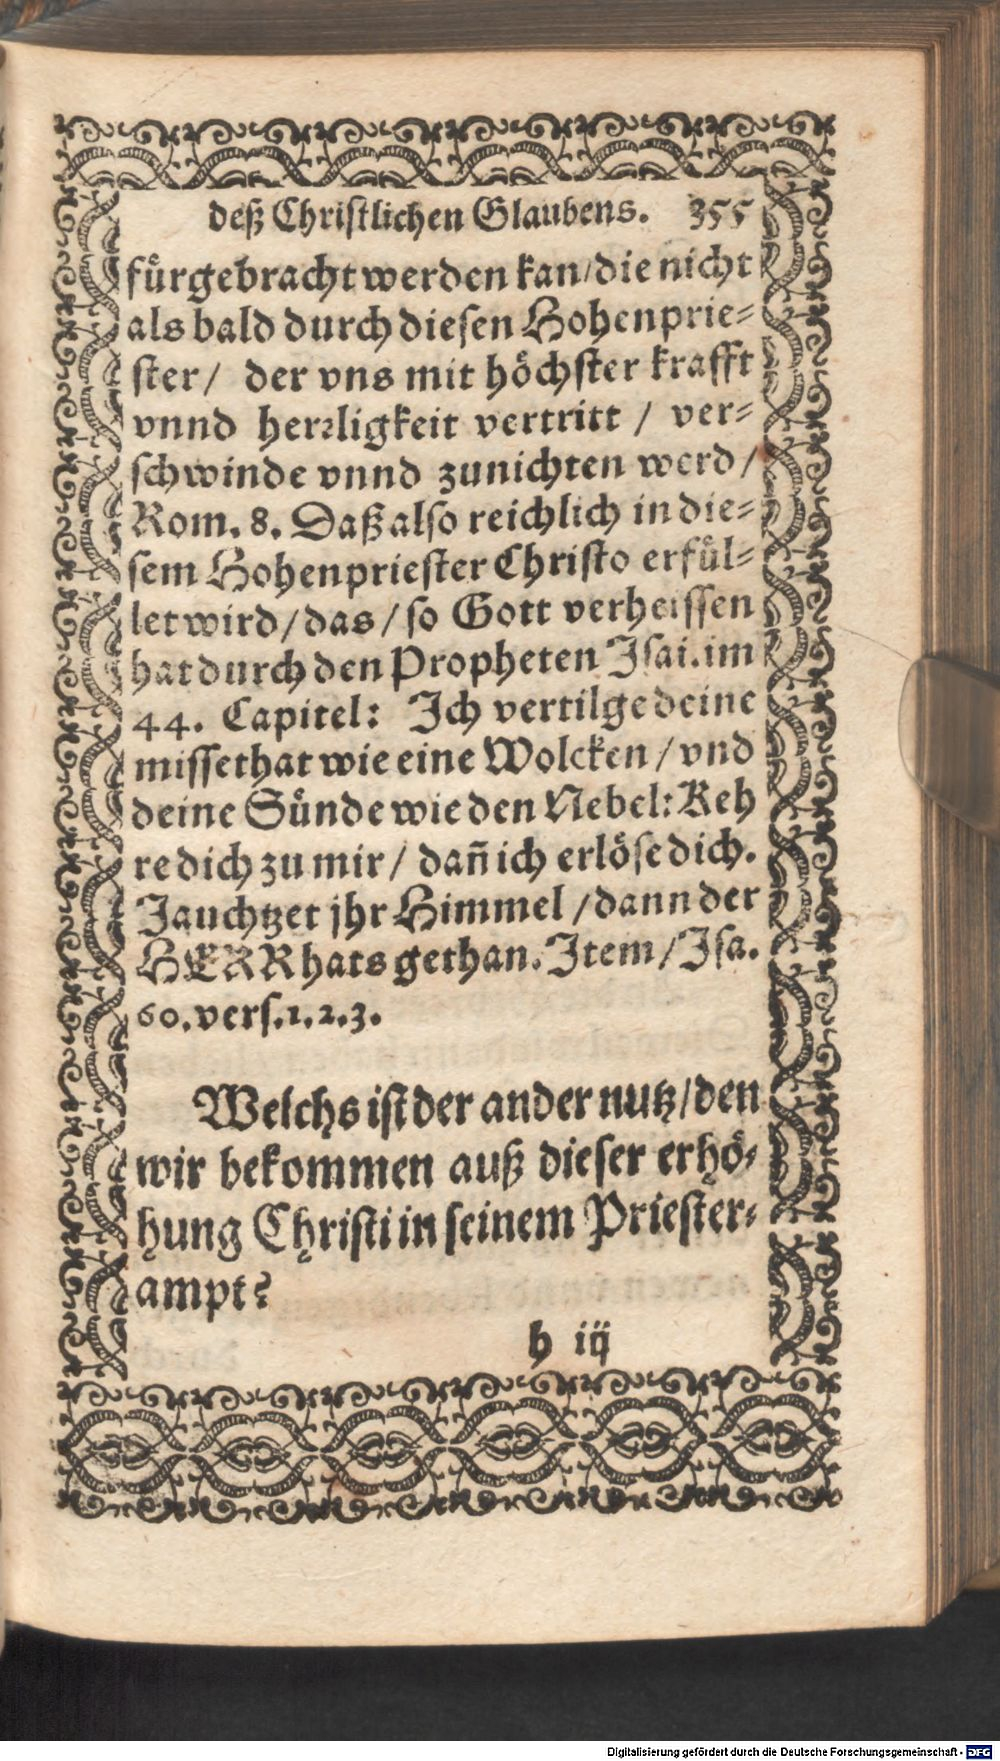 deß Christlichen Glaubens. 355
fürgebracht werden kan/die nicht
als bald durch diesen Hohenprie-
ster/ der vns mit höchster krafft
vnnd herrligkeit vertritt / ver-
schwinde vnnd zunichten werd/
Rom. 8. Daß also reichlich in die-
sem Hohenpriester Christo erfül-
let wird/das/so Gott verheissen
hat durch den Propheten Isai. im
44. Capitel: Ich vertilge deine
missethat wie eine Wolcken/vnd
deine Sünde wie den Nebel: Keh
re dich zu mir/ dañ ich erlöse dich.
Jauchtzet jhr Himmel/dann der
HERR hats gethan. Item/Isa.
60. vers. 1. 2. 3.
Welchs ist der ander nutz/den
wir bekommen auß dieser erhö-
hung Christi in seinem Priester-
ampt?
h iij
Digitalisierung gefördert durch die Deutsche Forschungsgemeinschaft - DFG